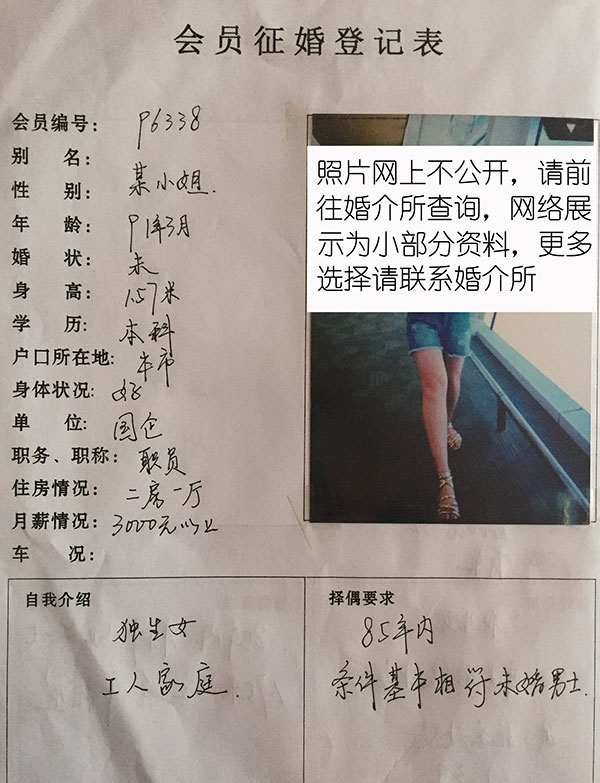 会员征婚登记表
会员编号: P6338
别 名:
性 别: 某小姐.
年 龄: 91年3月
婚 状: 未
身 高: 1.57米
学 历: 本科
户口所在地: 本市
身体状况: 好
单 位: 国企
职务、职称: 职员
住房情况: 二房一厅
月薪情况: 3000元以上
车 况:
照片网上不公开，请前
往婚介所查询，网络展
示为小部分资料，更多
选择请联系婚介所
自我介绍
独生女
工人家庭.
择偶要求
85年内
条件基本相符未婚男士.